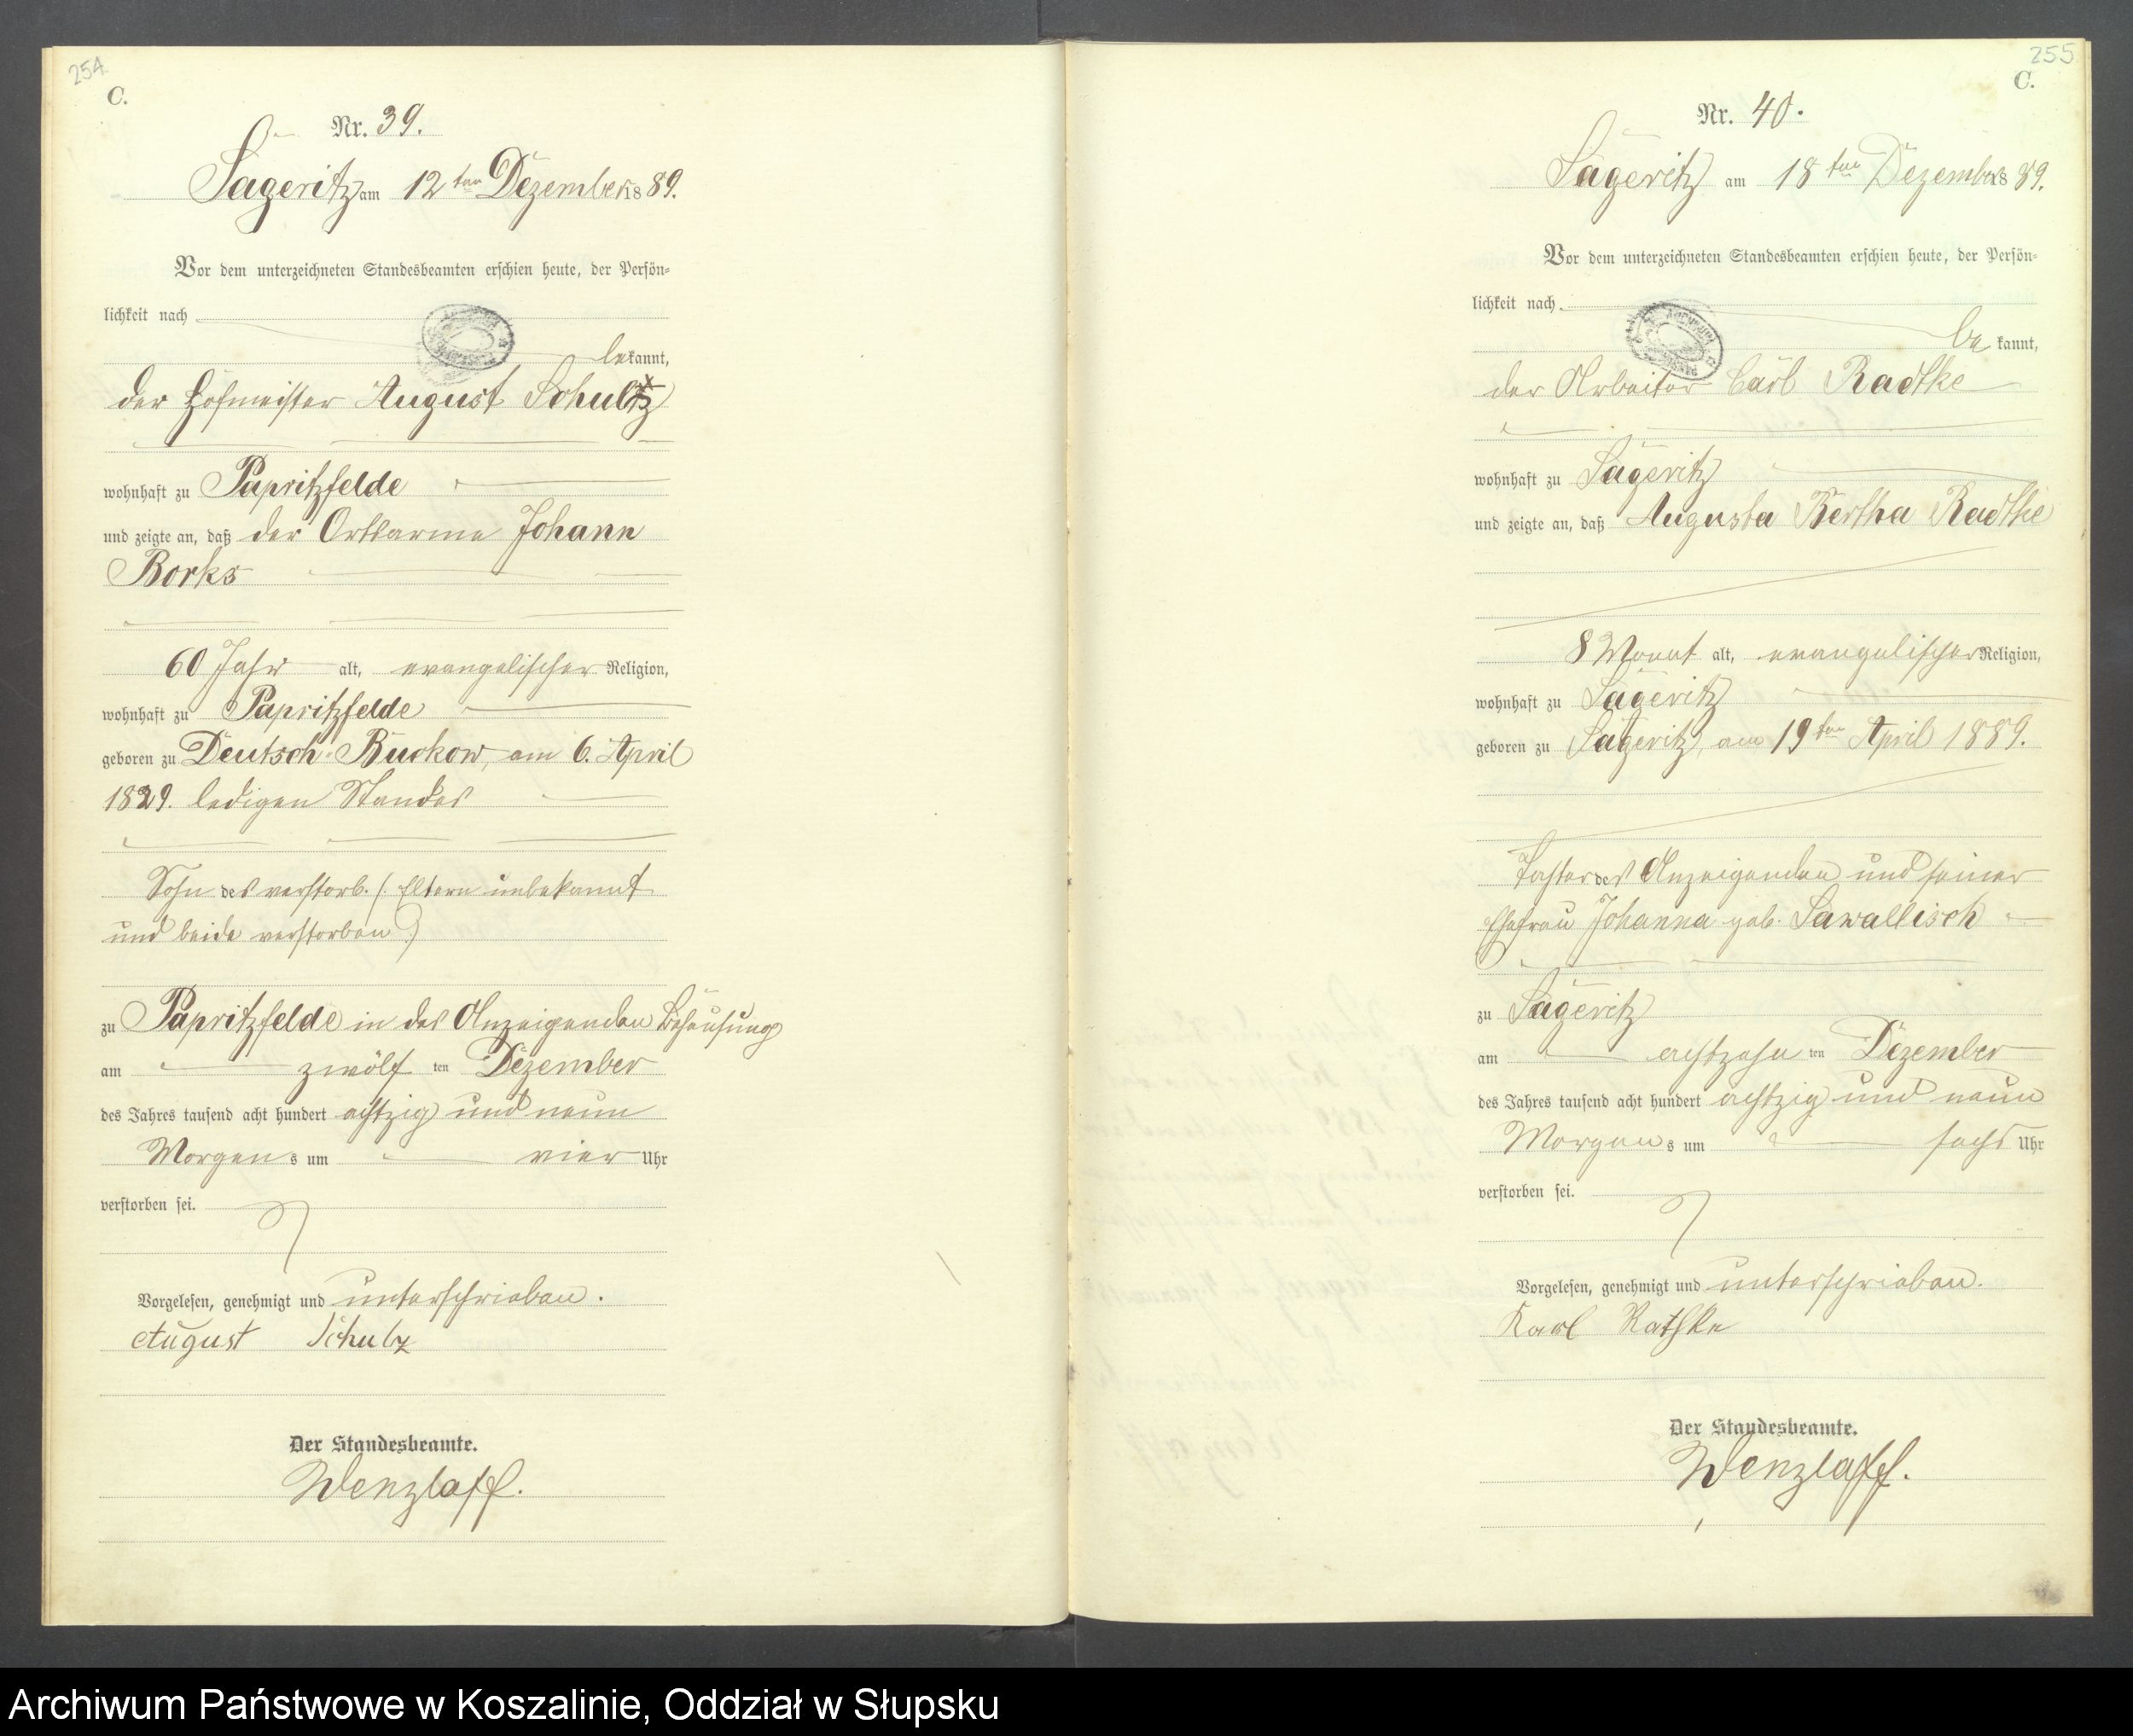 254.
C.
Nr. 39.
Sageritz am 12ten Dezember 1889.
Vor dem unterzeichneten Standesbeamten erschien heute, der Persön-
lichkeit nach
bekannt,
der Hofmeister August Schultz
wohnhaft zu Papritzfelde
und zeigte an, daß der Ortsarme Johann
Borks
60 Jahr alt, evangelischer Religion,
wohnhaft zu Papritzfelde
geboren zu Deutsch-Buckow, am 6. April
1829. ledigen Standes
Sohn des verstorb. (Eltern unbekannt
und beide verstorben)
zu Papritzfelde in des Anzeigenden Behausung
am zwölf ten Dezember
des Jahres tausend acht hundert achtzig und neun
Morgens um vier Uhr
verstorben sei.
Vorgelesen, genehmigt und unterschrieben.
August Schulz
Der Standesbeamte.
Wenzlaff.
255
C.
Nr. 40.
Sageritz am 18ten Dezember 1889.
Vor dem unterzeichneten Standesbeamten erschien heute, der Persön-
lichkeit nach
bekannt,
der Arbeiter Carl Radtke
wohnhaft zu Sageritz
und zeigte an, daß Augusta Bertha Radtke
8 Monat alt, evangelischer Religion,
wohnhaft zu Sageritz
geboren zu Sageritz, am 19ten April 1889.
Tochter des Anzeigenden und seiner
Ehefrau Johanna geb. Sawallisch
zu Sageritz
am achtzehn ten Dezember
des Jahres tausend acht hundert achtzig und neun
Morgens um sechs Uhr
verstorben sei.
Vorgelesen, genehmigt und unterschrieben.
Karl Rathke
Der Standesbeamte.
Wenzlaff.
Archiwum Państwowe w Koszalinie, Oddział w Słupsku